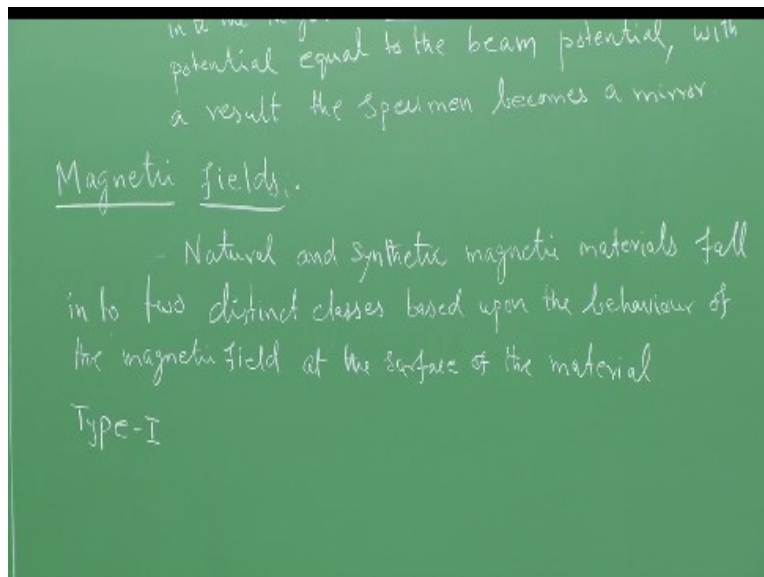 potential equal to the beam potential, with
a result the specimen becomes a mirror
Magnetic fields:-
- Natural and Synthetic magnetic materials fall
in to two distinct classes based upon the behaviour of
the magnetic field at the surface of the material
Type-I